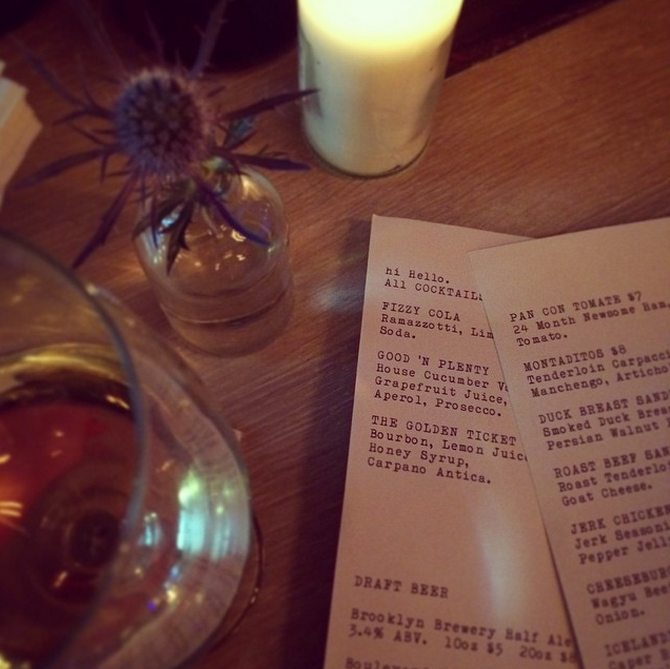 hi Hello.
All COCKTAILS
FIZZY COLA
Ramazzotti,
Soda.
GOOD 'N PLENTY
House Cucumber
Grapefruit Juice,
Aperol, Prosecco.
THE GOLDEN TICKET
Bourbon, Lemon Juice
Honey Syrup,
Carpano Antica.
DRAFT BEER
Brooklyn Brewery Half Ale
3.4% ABV. 10oz $5 20oz
PAN CON TOMATE $7
24 Month Newsome Ham,
Tomato.
MONTADITOS $8
Tenderloin
Manchengo,
DUCK BREAST
Smoked Duck
Persian Walnut
ROAST BEEF
Roast
Goat Cheese.
JERK CHICKEN
Jerk
Pepper
Wagyu
Onion.